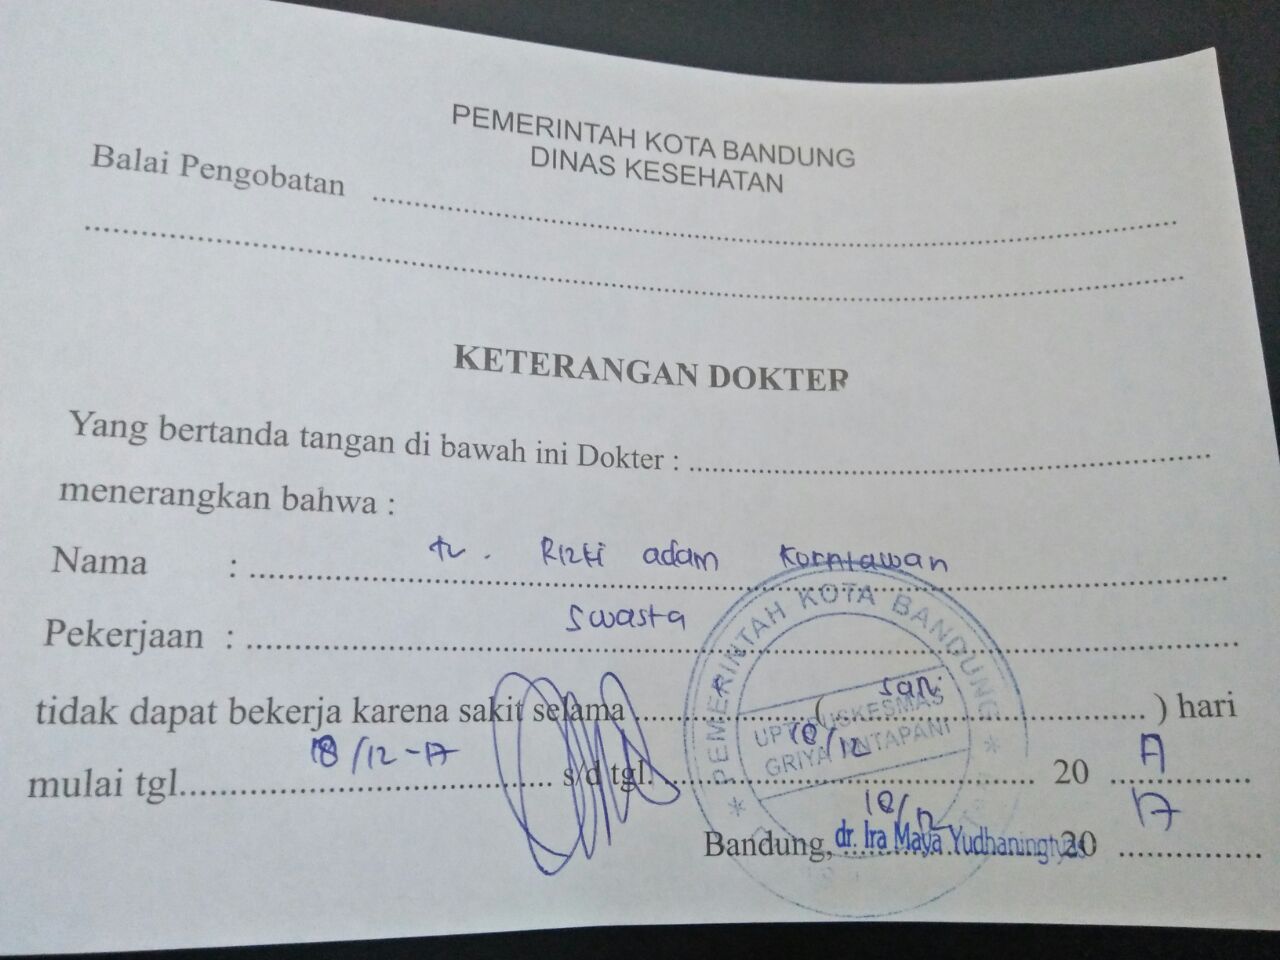 PEMERINTAH KOTA BANDUNG
DINAS KESEHATAN
Balai Pengobatan ........................
........................
KETERANGAN DOKTER
Yang bertanda tangan di bawah ini Dokter : ........................
menerangkan bahwa :
Nama : Rizki adam
Pekerjaan : Swasta
tidak dapat bekerja karena sakit selama ............ ( ............ ) hari
mulai tgl. 18/12-17 s/d tgl. 18/12 20 17
Bandung, 18/12 20 17
dr. Ira Maya Yudhaningtyas
PEMERINTAH KOTA BANDUNG
UPT PUSKESMAS
GRIYA ANTAPANI